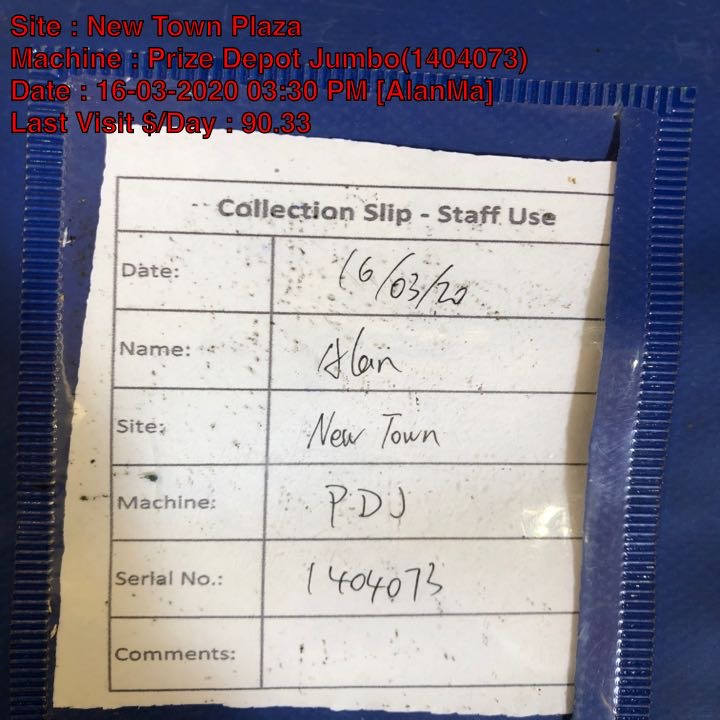 Site : New Town Plaza
Machine : Prize Depot Jumbo(1404073)
Date : 16-03-2020 03:30 PM [AlanMa]
Last Visit $/Day : 90.33
Collection Slip - Staff Use
Date: 16/03/20
Name: Alan
Site: New Town
Machine: PDJ
Serial No.: 1404073
Comments: